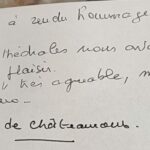 à rendu hommage
thédrales nous avo
plaisir.
très agréable, m
de Châteauroux.